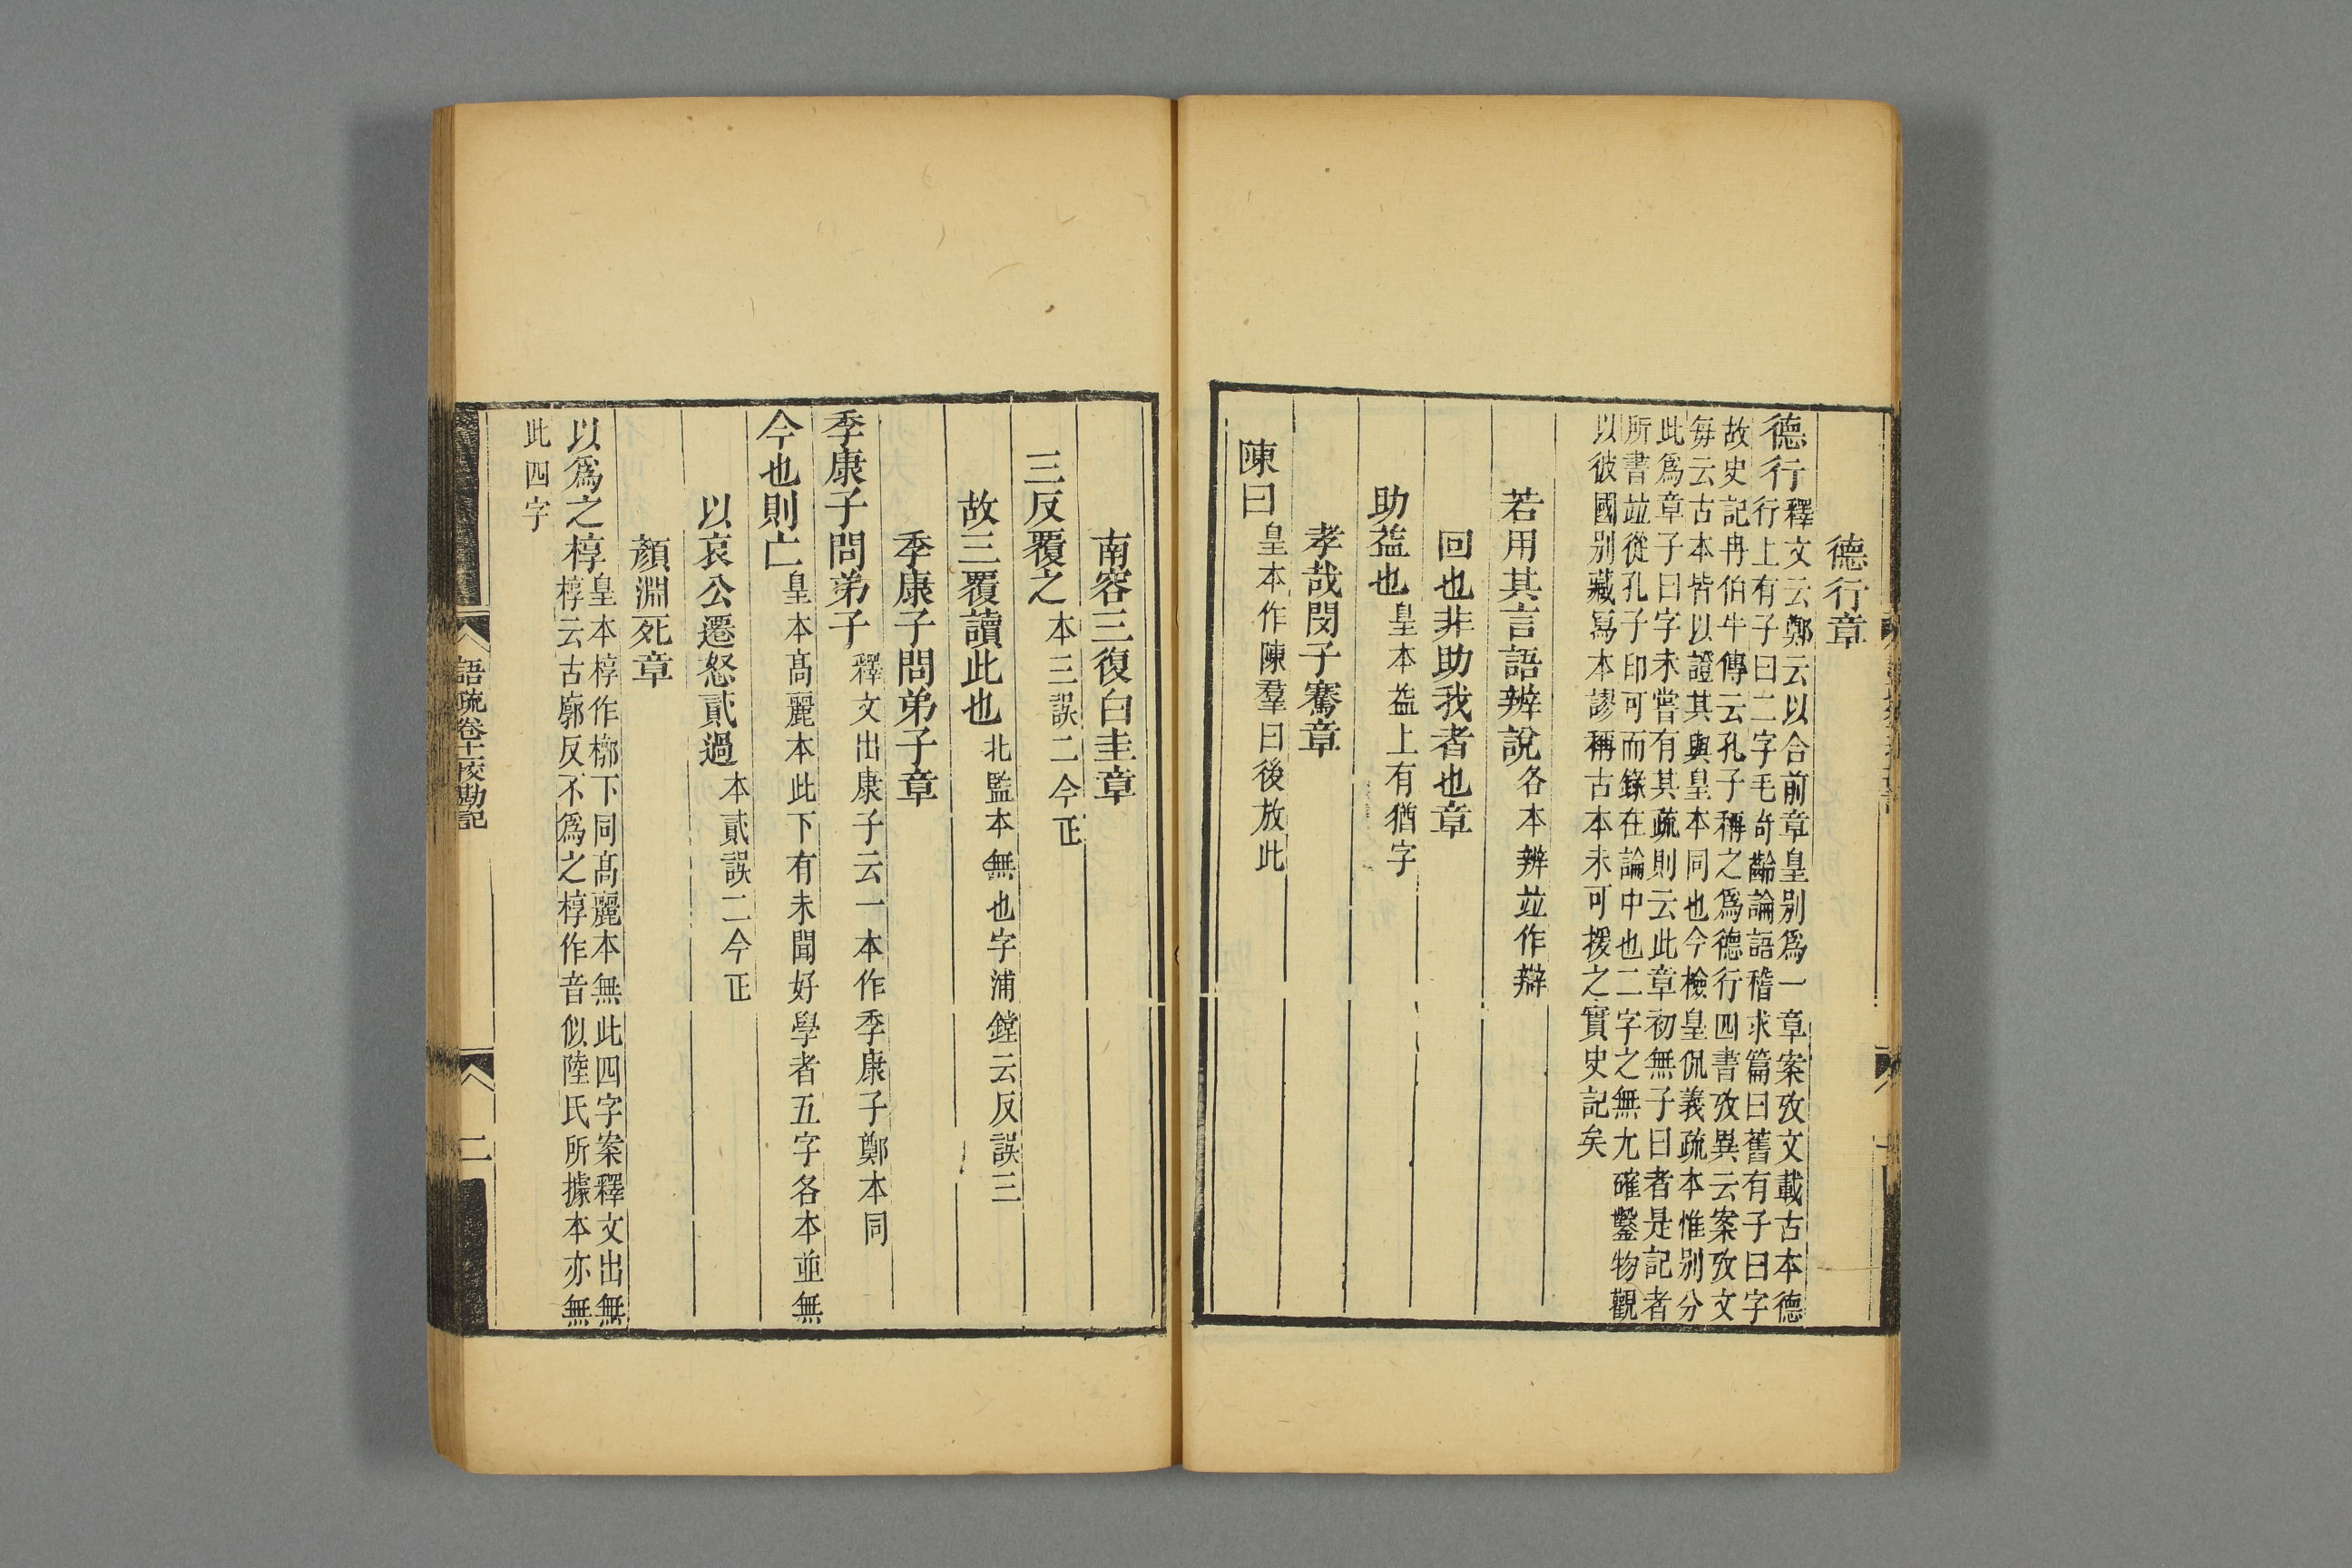 德行章
德行釋文云鄭云以合前章皇别爲一章案攷文載古本德
行上有子曰二字毛奇齡論語稽求篇曰舊有子曰字
故史記冉伯牛傳云孔子稱之爲德行四書攷異云案攷文
每云古本皆以證其與皇本同也今檢皇侃義疏本惟别分
此爲章子曰字未嘗有其疏則云此章初無子曰者是記者
所書竝從孔子印可而錄在論中也二字之無尤確鑿物觀
以彼國别藏寫本謬稱古本未可援之實史記矣
若用其言語辨說各本辨竝作辯
回也非助我者也章
助益也皇本益上有猶字
孝哉閔子騫章
陳曰皇本作陳羣曰後放此
南容三復白圭章
三反覆之本三誤二今正
故三覆讀此也北監本無也字浦鏜云反誤三
季康子問弟子章
季康子問弟子釋文出康子云一本作季康子鄭本同
今也則亡皇本髙麗本此下有未聞好學者五字各本並無
以哀公遷怒貳過本貳誤二今正
顏淵死章
以爲之椁皇本椁作槨下同髙麗本無此四字案釋文出無
椁云古廓反不爲之椁作音似陸氏所據本亦無
此四字
語疏卷十一挍勘記
二